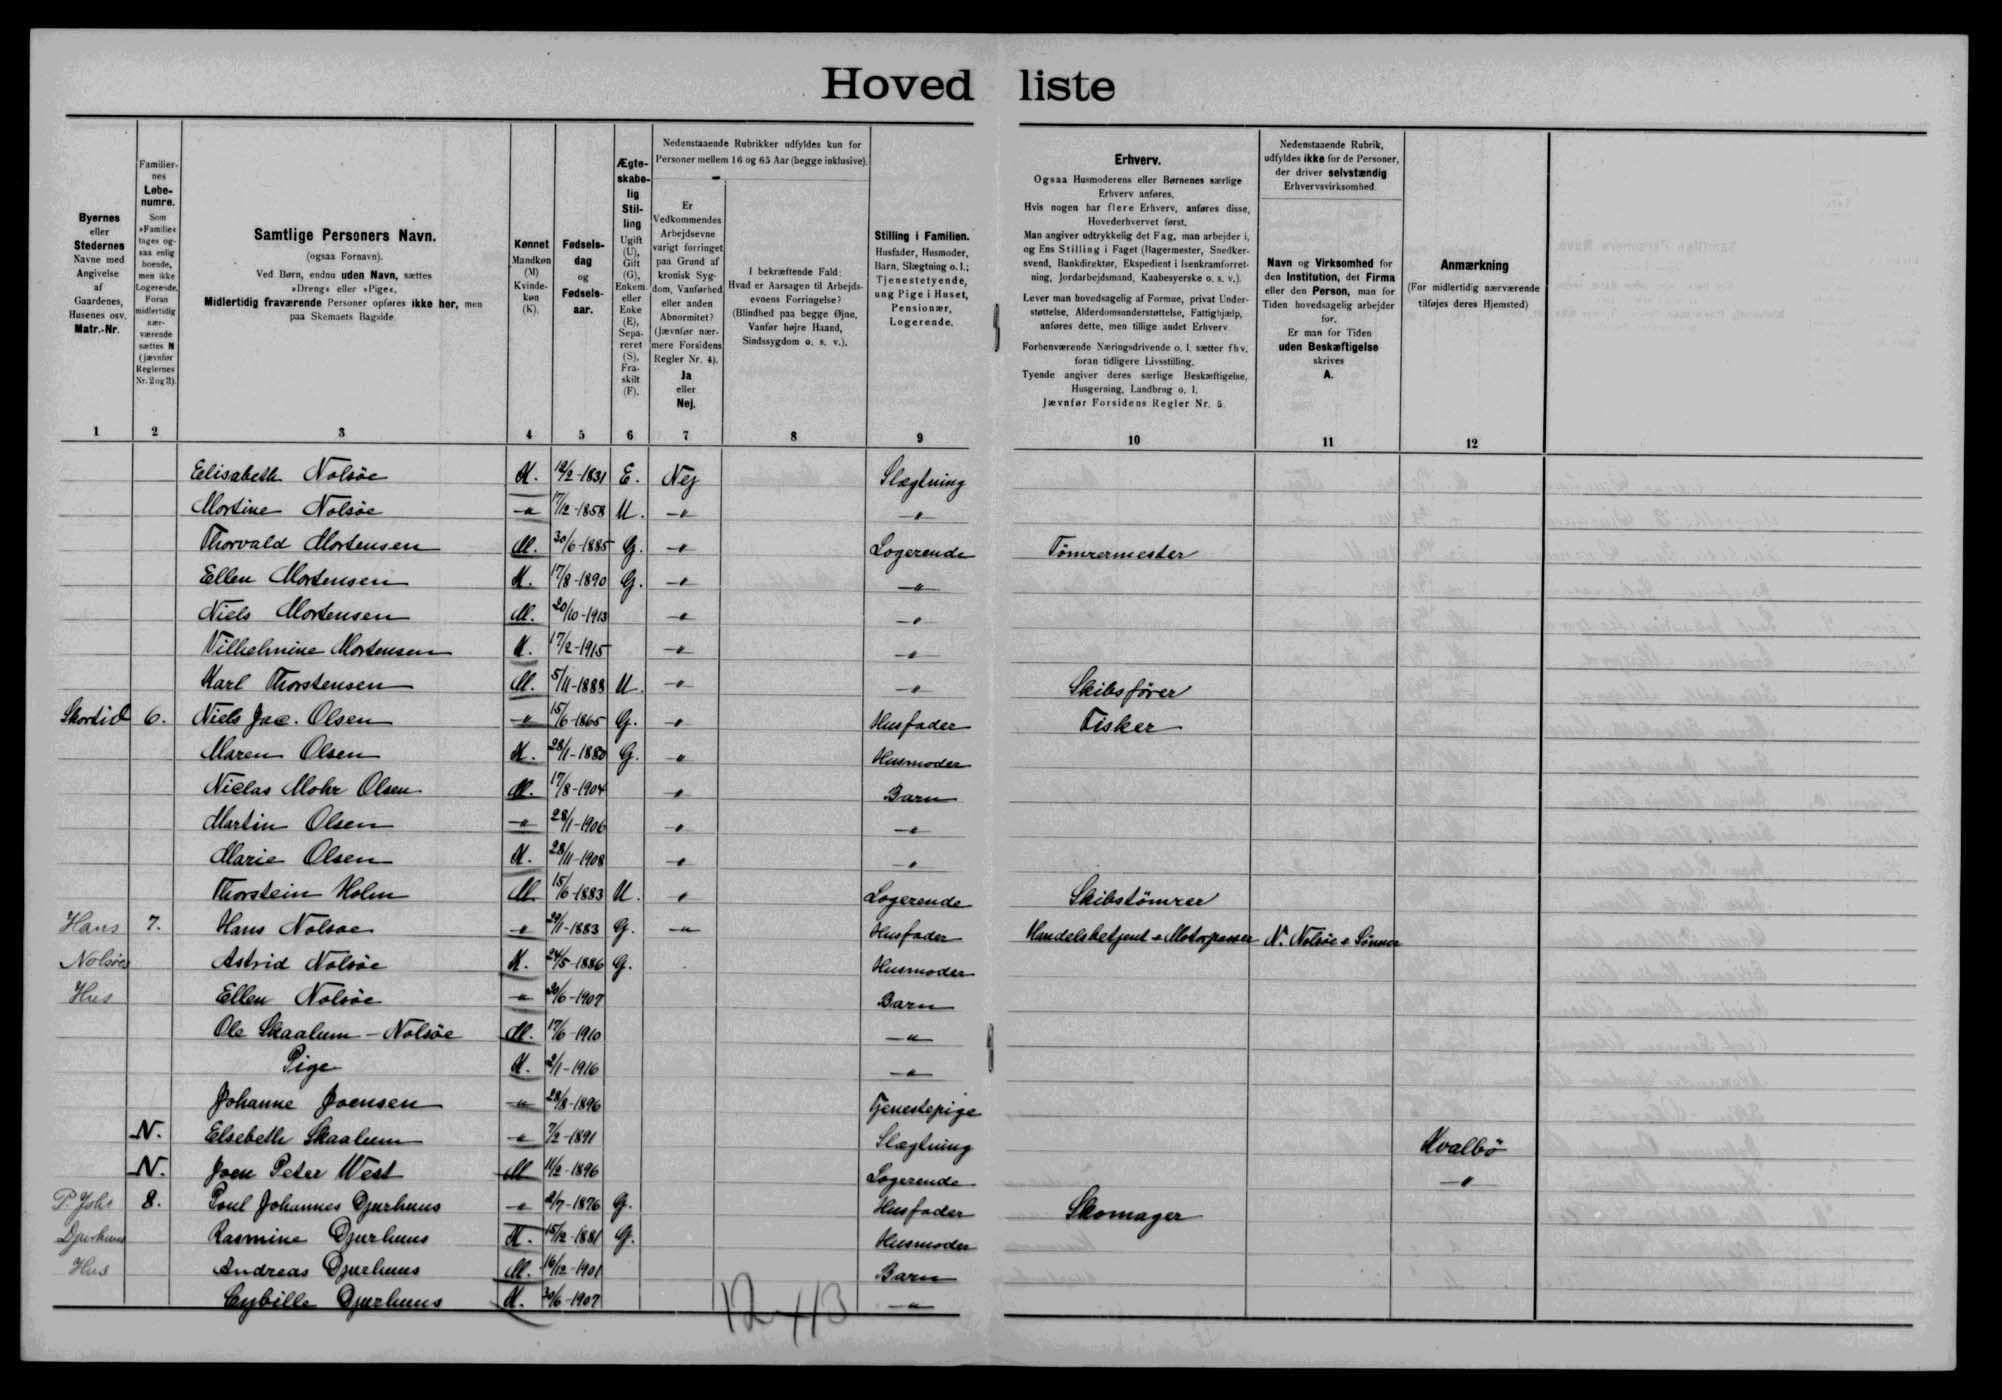 Hovedliste
Byernes eller Stedernes Navne med Angivelse af Gaardenes, Husenes osv. Matr.-Nr.
Familiernes Løbenumre. Som »Familie« tages ogsaa enlig boende, men ikke Logerende. Foran midlertidig nærværende sættes N (jævnfør Reglernes Nr. 2 og 3).
Samtlige Personers Navn. (ogsaa Fornavn). Ved Børn, endnu uden Navn, sættes »Dreng« eller »Pige«. Midlertidig fraværende Personer opføres ikke her, men paa Skemaets Bagside.
Kønnet Mandkøn (M) Kvindekøn (K).
Fødselsdag og Fødselsaar.
Ægteskabelig Stilling Ugift (U), Gift (G), Enkem. eller Enke (E), Separeret (S), Fraskilt (F).
Nedenstaaende Rubrikker udfyldes kun for Personer mellem 16 og 65 Aar (begge inklusive).
Er Vedkommendes Arbejdsevne varigt forringet paa Grund af kronisk Sygdom, Vanførhed eller anden Abnormitet? (Jævnfør nærmere Forsidens Regler Nr. 4). Ja eller Nej.
I bekræftende Fald: Hvad er Aarsagen til Arbejdsevnens Forringelse? (Blindhed paa begge Øjne, Vanfør højre Haand, Sindssygdom o. s. v.).
Stilling i Familien. Husfader, Husmoder, Barn, Slægtning o. l.; Tjenestetyende, ung Pige i Huset, Pensionær, Logerende.
Erhverv.
Ogsaa Husmoderens eller Børnenes særlige Erhverv anføres.
Hvis nogen har flere Erhverv, anføres disse, Hovederhvervet først.
Man angiver udtrykkelig det Fag, man arbejder i, og Ens Stilling i Faget (Bagermester, Snedkersvend, Bankdirektør, Ekspedient i Isenkramforretning, Jordarbejdsmand, Kaabesyerske o. s. v.).
Lever man hovedsagelig af Formue, privat Understøttelse, Alderdomsunderstøttelse, Fattighjælp, anføres dette, men tillige andet Erhverv.
Forhenværende Næringsdrivende o. l. sætter fhv. foran tidligere Livsstilling.
Tyende angiver deres særlige Beskæftigelse, Husgerning, Landbrug o. l.
Jævnfør Forsidens Regler Nr. 5.
Nedenstaaende Rubrik, udfyldes ikke for de Personer, der driver selvstændig Erhvervsvirksomhed.
Navn og Virksomhed for den Institution, det Firma eller den Person, man for Tiden hovedsagelig arbejder for.
Er man for Tiden uden Beskæftigelse skrives A.
Anmærkning (For midlertidig nærværende tilføjes deres Hjemsted)
1 2 3 4 5 6 7 8 9 10 11 12
Elisabeth Nolsøe K. 12/2-1831 E. Nej Slægtning
Mortine Nolsøe -"- 17/12-1858 U. -"- -"-
Thorvald Mortensen M. 30/6-1885 G. -"- Logerende Tømrermester
Ellen Mortensen K. 17/8-1890 G. -"- -"-
Niels Mortensen M. 20/10-1913 -"- -"-
Vilhelmine Mortensen K. 17/2-1915 -"- -"-
Karl Thorstensen M. 5/11-1888 U. -"- -"- Skibsfører
6. Niels Jac. Olsen -"- 15/6-1865 G. -"- Husfader Fisker
Maren Olsen K. 28/1-1880 G. -"- Husmoder
Niclas Mohr Olsen M. 17/8-1904 -"- Barn
Martin Olsen -"- 28/1-1906 -"- -"-
Marie Olsen K. 28/11-1908 -"- -"-
Thorstein Holm M. 15/6-1883 U. -"- Logerende Skibstømrer
Hans 7. Hans Nolsøe -"- 29/1-1883 G. -"- Husfader Handelsbetjent & Motorpasser N. Nolsøe & Sønner
Nolsøes Astrid Nolsøe K. 24/5-1886 G. Husmoder
Hus Ellen Nolsøe -"- 20/6-1907 Barn
Ole Skaalum-Nolsøe M. 17/6-1910 -"-
Pige K. 2/1-1916 -"-
Johanne Joensen -"- 28/8-1896 Tjenestepige
N. Elsebeth Skaalum -"- 7/2-1891 Slægtning Kvalbø
N. Joen Peter West M 11/2-1896 Logerende -"-
P. Johs 8. Poul Johannes Djurhuus -"- 2/7-1876 G. Husfader Skomager
Djurhuus Rasmine Djurhuus K. 15/12-1881 G. Husmoder
Hus Andreas Djurhuus M. 16/12-1901 Barn
Cybille Djurhuus K. 30/6-1907 -"-